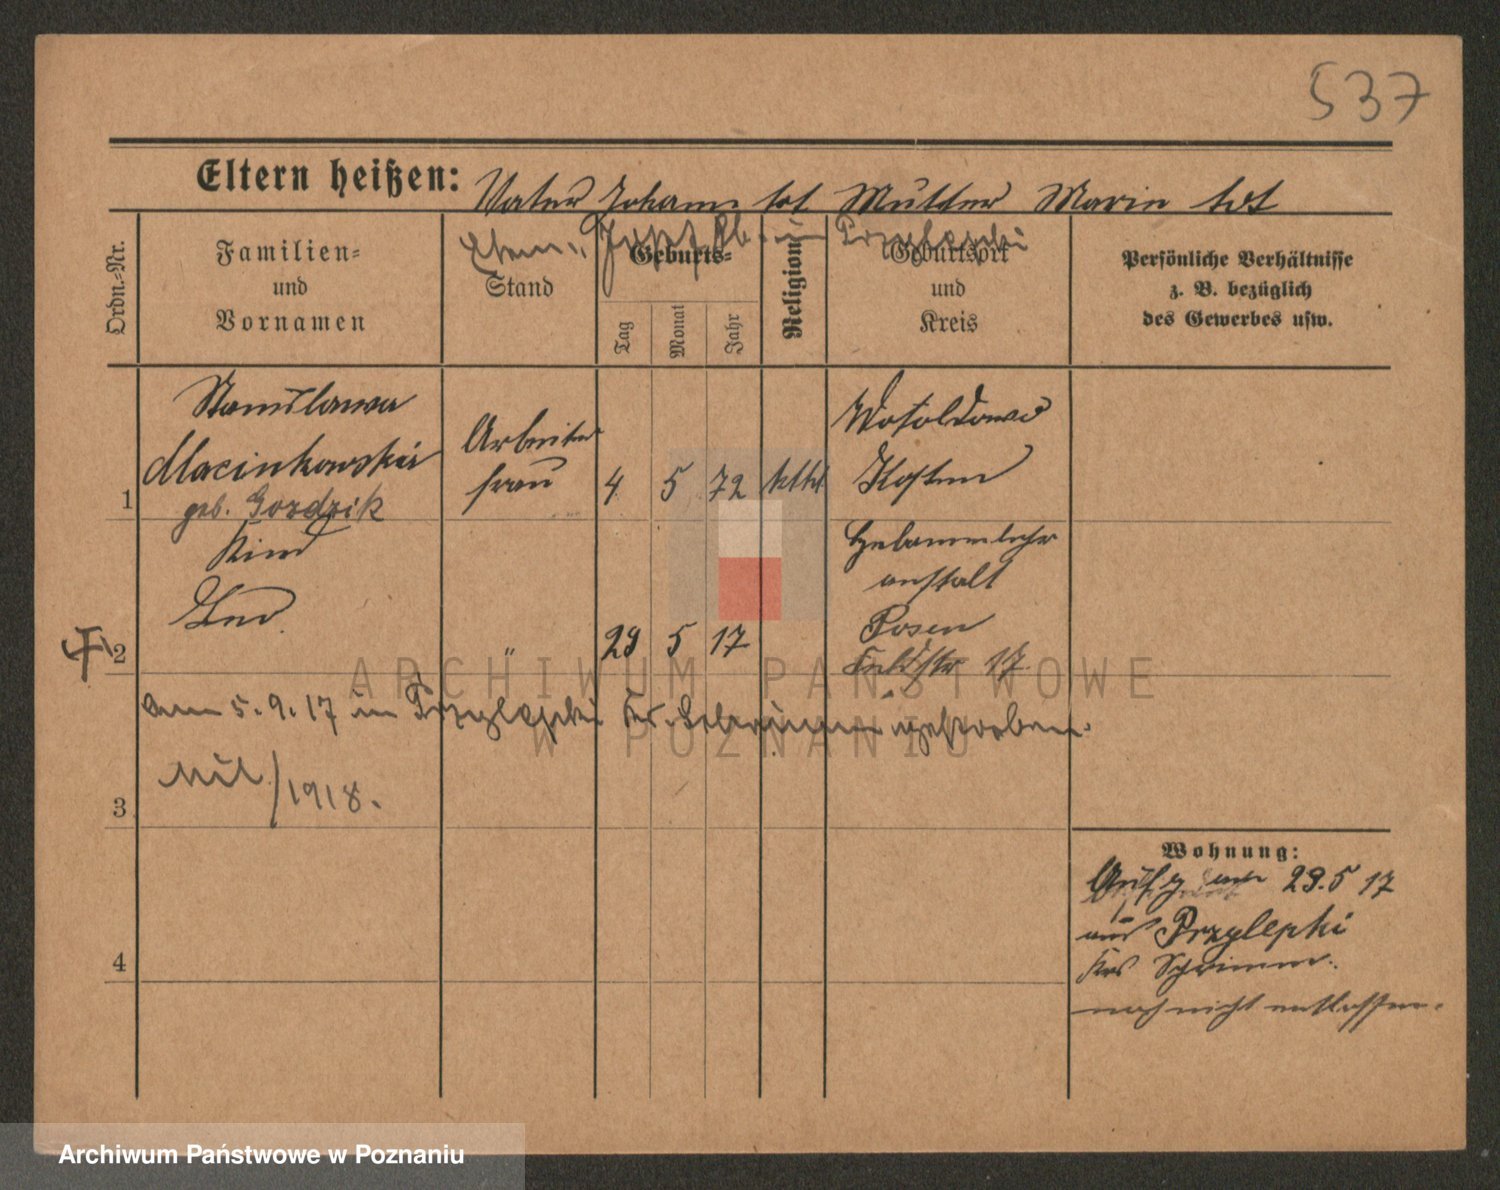 537
Eltern heißen: Vater Johann tot Mutter Marie tot
Ordn.-Nr.
Familien-
und
Vornamen
Stand
Ehem.: Josef Ab. in Przylepki
Geburts-
Tag
Monat
Jahr
Religion
Geburtsort
und
Kreis
Persönliche Verhältnisse
z. B. bezüglich
des Gewerbes usw.
1
Stanislawa
Macinkowska
geb. Gozdzik
Arbeiter
frau
4 5 72 kath
Kosten
Kind
2
" 29 5 17
Hebammenlehr
anstalt
Posen
Feldstr 17
am 5.9.17 in Przylepki Kr. Schrimm gestorben.
3
/1918.
4
Wohnung:
29.5 17
aus Przylepki
Krs Schrimm.
noch nicht entlassen.
ARCHIWUM PAŃSTWOWE
W POZNANIU
Archiwum Państwowe w Poznaniu